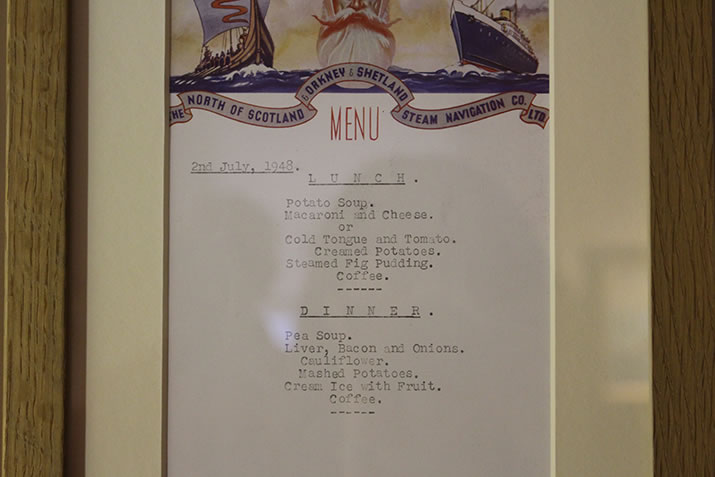 THE NORTH OF SCOTLAND & ORKNEY & SHETLAND STEAM NAVIGATION CO. LTD.
MENU
2nd July, 1948.
L U N C H .
Potato Soup.
Macaroni and Cheese.
or
Cold Tongue and Tomato.
Creamed Potatoes.
Steamed Fig Pudding.
Coffee.
------
D I N N E R .
Pea Soup.
Liver, Bacon and Onions.
Cauliflower.
Mashed Potatoes.
Cream Ice with Fruit.
Coffee.
------